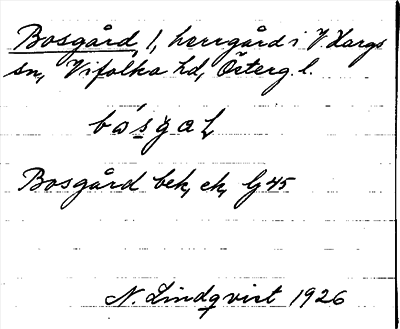 Bosgård, 1, herrgård i V. Hargs
sn, Vifolka hd, Österg. l.
Bosgård bek, ek, Lj 45
N. Lindqvist 1926